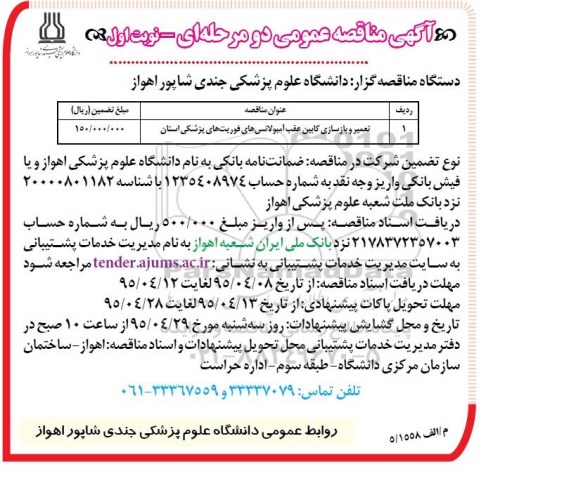 آگهی مناقصه عمومی دو مرحله‌ای – نوبت اول
دستگاه مناقصه گزار: دانشگاه علوم پزشکی جندی شاپور اهواز
ردیف عنوان مناقصه مبلغ تضمین (ریال)
۱ تعمیر و بازسازی کابین عقب آمبولانس‌های فوریت‌های پزشکی استان ۱۵۰/۰۰۰/۰۰۰
نوع تضمین شرکت در مناقصه: ضمانت‌نامه بانکی به نام دانشگاه علوم پزشکی اهواز و یا
فیش بانکی واریز وجه نقد به شماره حساب ۱۲۳۵۴۰۸۹۷۴ با شناسه ۲۰۰۰۰۸۰۱۱۸۲
نزد بانک ملت شعبه علوم پزشکی اهواز
دریافت اسناد مناقصه: پس از واریز مبلغ ۵۰۰/۰۰۰ ریال به شماره حساب
۲۱۷۸۳۷۲۳۵۷۰۰۳ نزد بانک ملی ایران شعبه اهواز به نام مدیریت خدمات پشتیبانی
به سایت مدیریت خدمات پشتیبانی به نشانی: tender.ajums.ac.ir مراجعه شود
مهلت دریافت اسناد مناقصه: از تاریخ ۹۵/۰۴/۰۸ لغایت ۹۵/۰۴/۱۲
مهلت تحویل پاکات پیشنهادی: از تاریخ ۹۵/۰۴/۱۳ لغایت ۹۵/۰۴/۲۸
تاریخ و محل گشایش پیشنهادات: روز سه‌شنبه مورخ ۹۵/۰۴/۲۹ از ساعت ۱۰ صبح در
دفتر مدیریت خدمات پشتیبانی محل تحویل پیشنهادات و اسناد مناقصه: اهواز – ساختمان
سازمان مرکزی دانشگاه – طبقه سوم – اداره حراست
تلفن تماس: ۳۳۳۳۷۰۷۹ و ۳۳۳۶۷۵۵۹-۰۶۱
روابط عمومی دانشگاه علوم پزشکی جندی شاپور اهواز
م/الف ۵/۱۵۵۸